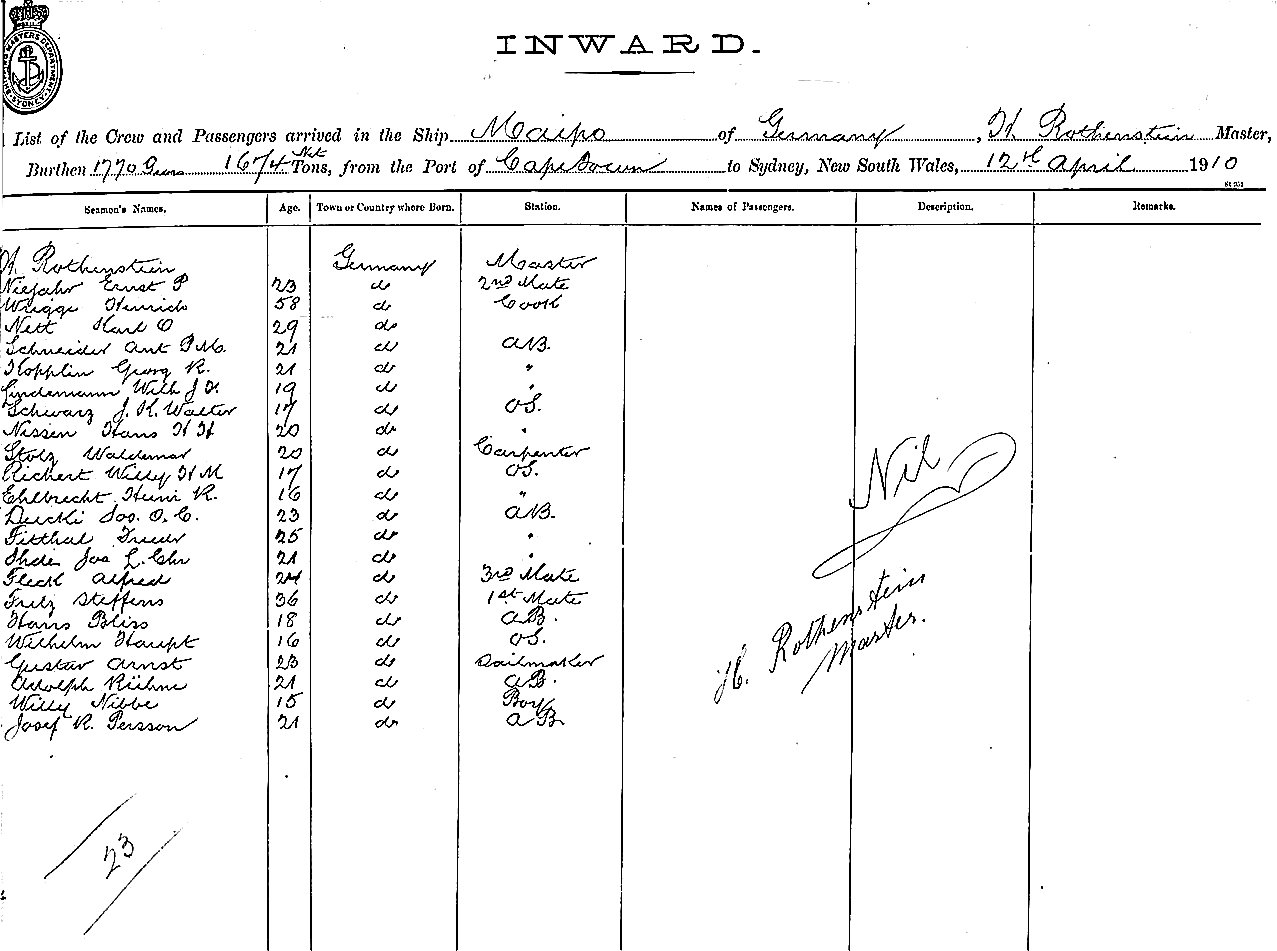 SHIPPING MASTERS DEPARTMENT SYDNEY
INWARD.
List of the Crew and Passengers arrived in the Ship Maipo of Germany, H Rothenstein Master,
Burthen 1770 Gross 1674 Net Tons, from the Port of Cape Town to Sydney, New South Wales, 12th April 1910
Seamen's Names. Age. Town or Country where Born. Station. Names of Passengers. Description. Remarks.
H. Rothenstein Germany Master
Niejahr Ernst P 23 do 2nd Mate
Wrigge Heinrich 58 do Cook
Nett Karl O 29 do
Schneider Ant P M. 21 do AB.
Hopplin Georg R. 21 do "
Lindemann Wilh J H. 19 do "
Schwarz J. K. Walter 17 do OS.
Nissen Hans H H 20 do "
Stolz Waldemar 20 do Carpenter
Richert Willy H M 17 do OS.
Ehlbrecht Heini R. 16 do "
Jos. O. C. 23 do AB.
Fitthal 25 do "
Jos L. Chr 21 do "
Fleck Alfred 24 do 3rd Mate
Fritz Steffens 36 do 1st Mate
Hans Bliss 18 do AB.
Wilhelm Haupt 16 do OS.
Gustav Arnst 23 do Sailmaker
Adolph Kühne 21 do AB.
Willy Nibbe 15 do Boy
Josef R. Persson 21 do AB
Nil
H. Rothenstein
Master.
23